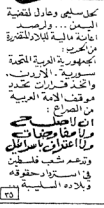 كحل سليمي وعادل لقضية
اليمن ... ولرصد
اعانة مالية للبلاد المتضررة
من الحرب :
جمهورية العربية المتحدة
سورية . الاردن .
واتخاذ قرارات تحدد
موقف الامة العربية
من الصراع :
ان لا صلح
ولا مفاوضات
ولا اعتراف باسرائيل
وتدعم شعب فلسطين
في استرداد حقوقه
وبلاده السليبة
٣٥